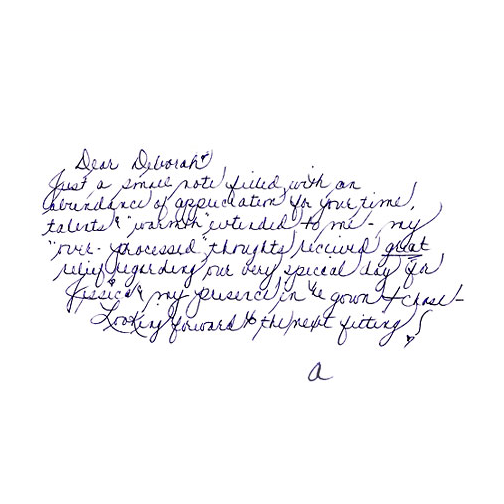 Dear Deborah
Just a small note filled with an
abundance of appreciation for your time,
talents & "warmth" extended to me - my
"over-processed" thoughts received great
relief regarding our very special day for
Jessica & my presence in the gown I chose -
Looking forward to the next fitting!
a